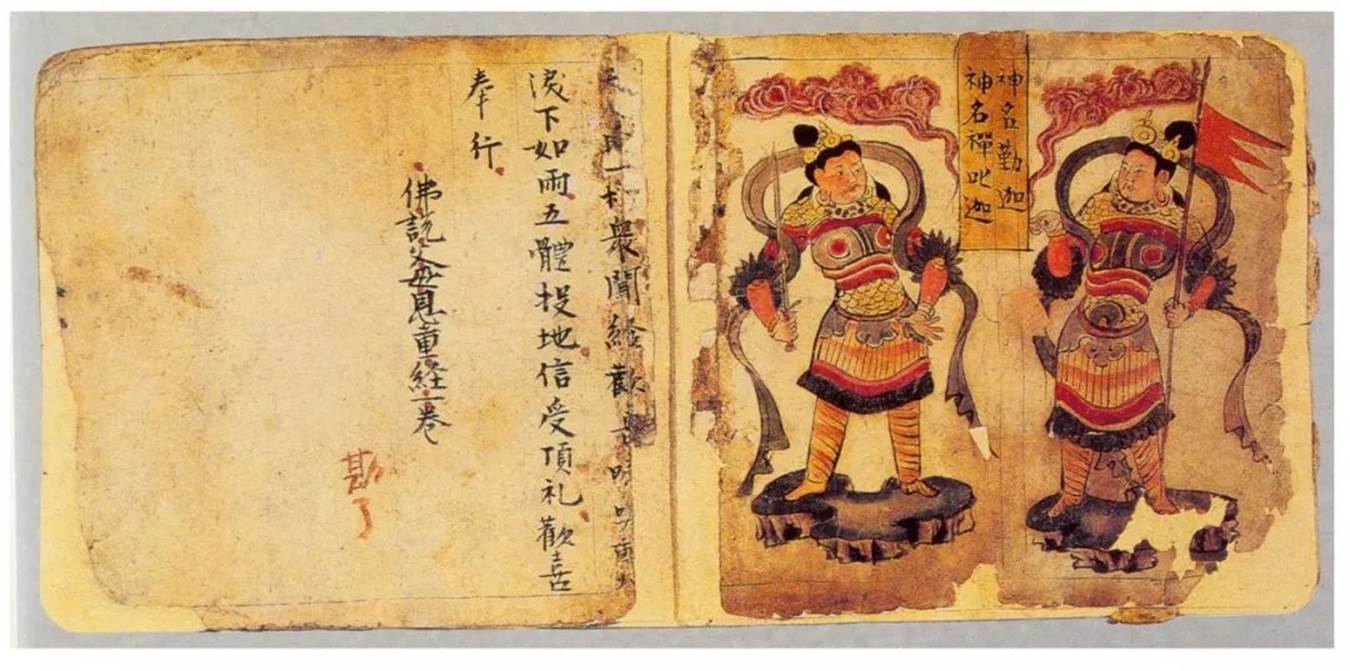 神名勤迦
神名禪叱迦
一切衆聞経歡
淚下如雨五體投地信受頂礼歡喜
奉行
佛說父母恩重経一卷
勘了